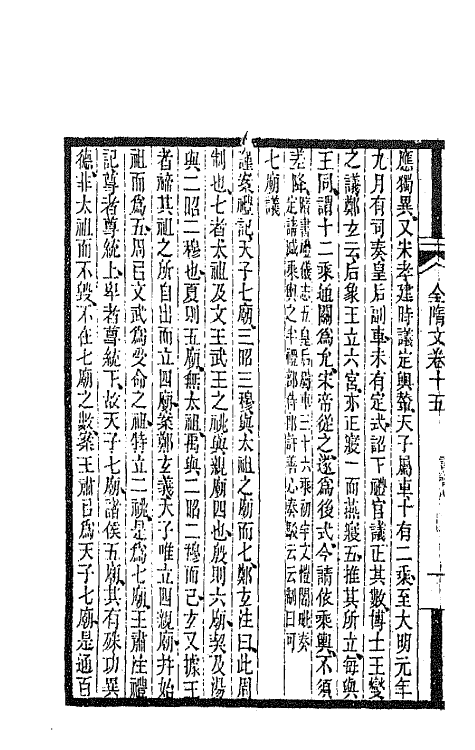 應獨異又宋孝建時議定輿輦天子屬車十有二乘至大明元年
九月有司奏皇后副車未有定式詔下禮官議正其數博士王燮
之議鄭玄云后象王立六宮亦正寢一而燕寢五推其所立每與
王同謂十二乘通關爲允宋帝從之遂爲後式今請依乘輿不須
差降隋書禮儀志五皇后屬車三十六乘初宇文愷閻毗奏
定請減乘輿之半禮部侍郎許善心奏駁云云制曰可
七廟議
謹案禮記天子七廟三昭三穆與太祖之廟而七鄭玄注曰此周
制也七者太祖及文王武王之祧與親廟四也殷則六廟契及湯
與二昭二穆也夏則五廟無太祖禹與二昭二穆而已玄又據王
者禘其祖之所自出而立四廟案鄭玄義天子唯立四親廟幷始
祖而爲五周以文武爲受命之祖特立二祧是爲七廟王肅注禮
記尊者尊統上卑者尊統下故天子七廟諸侯五廟其有殊功異
德非太祖而不毀不在七廟之數案王肅以爲天子七廟是通百
全隋文卷十五